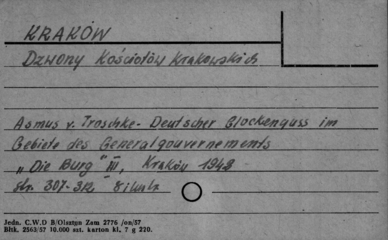 KRAKÓW
Dzwony Kościołów Krakowskich
Asmus v. Troschke - Deutscher Glockenguss im
Gebiete des Generalgouvernements
„Die Burg" III, Kraków 1942
str. 307-312,
Jedn. C.W.D B/Olsztyn Zam 2776 /on/57
Bltk. 2563/57 10.000 szt. karton kl. 7 g 220.